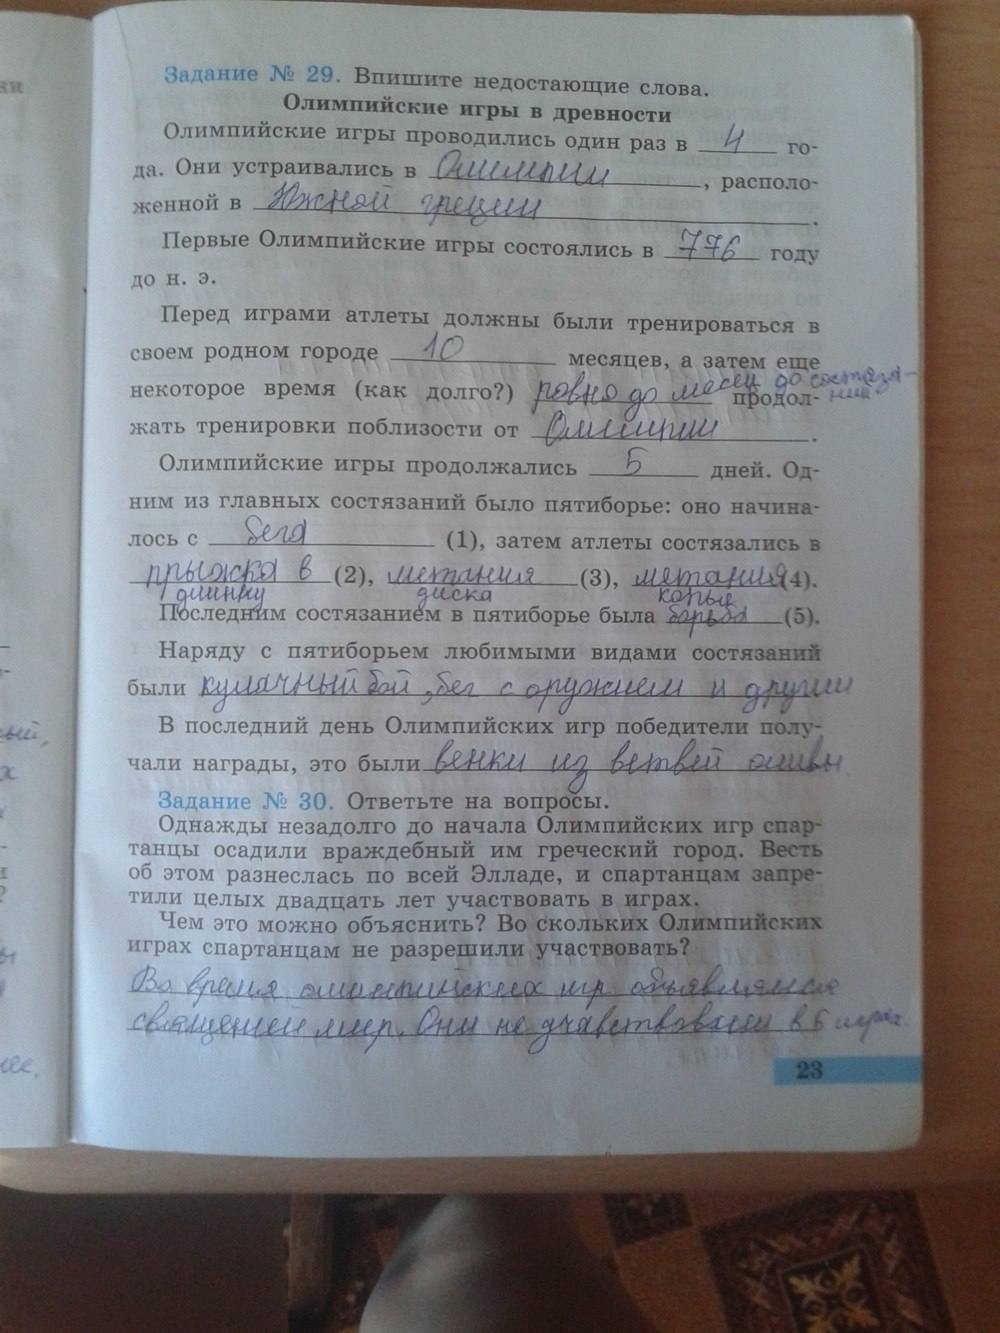 Задание № 29. Впишите недостающие слова.
Олимпийские игры в древности
Олимпийские игры проводились один раз в 4 го-
да. Они устраивались в Олимпии, располо-
женной в Южной греции.
Первые Олимпийские игры состоялись в 776 году
до н. э.
Перед играми атлеты должны были тренироваться в
своем родном городе 10 месяцев, а затем еще
некоторое время (как долго?) ровно до месец до состяза- продол-
ний
жать тренировки поблизости от Олимпии.
Олимпийские игры продолжались 5 дней. Од-
ним из главных состязаний было пятиборье: оно начина-
лось с бега (1), затем атлеты состязались в
прыжка в (2), метания (3), метания (4).
длинну диска копья
Последним состязанием в пятиборье была борьба (5).
Наряду с пятиборьем любимыми видами состязаний
были кулачный бой, бег с оружием и другии
В последний день Олимпийских игр победители полу-
чали награды, это были венки из ветвей оливы
Задание № 30. Ответьте на вопросы.
Однажды незадолго до начала Олимпийских игр спар-
танцы осадили враждебный им греческий город. Весть
об этом разнеслась по всей Элладе, и спартанцам запре-
тили целых двадцать лет участвовать в играх.
Чем это можно объяснить? Во скольких Олимпийских
играх спартанцам не разрешили участвовать?
Во время олимпийских игр объявлялся
священей мир. Они не учавствовали в 5 играх.
23